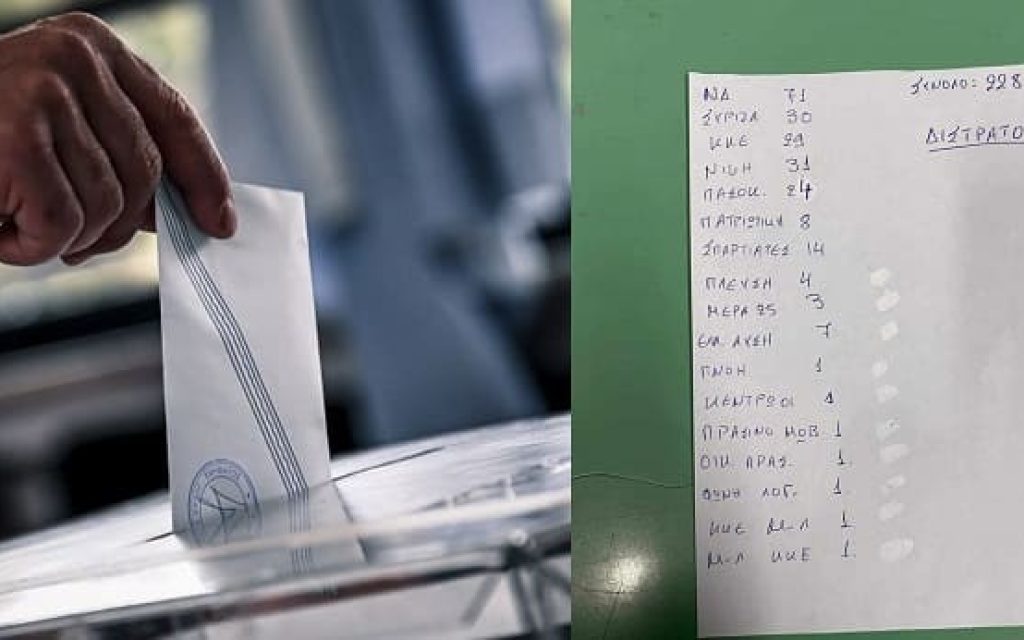 ΣΥΝΟΛΟ: 228
ΔΙΣΤΡΑΤΟ
ΝΔ 71
ΣΥΡΙΖΑ 30
ΚΚΕ 29
ΝΙΚΗ 31
ΠΑΣΟΚ. 24
ΠΑΤΡΙΩΤΙΚΗ 8
ΣΠΑΡΤΙΑΤΕΣ 14
ΠΛΕΥΣΗ 4
ΜΕΡΑ 25 3
ΕΛΛ. ΛΥΣΗ 7
ΠΝΟΗ 1
ΚΕΝΤΡΩΟΙ 1
ΠΡΑΣΙΝΟ ΜΩΒ 1
ΟΙΚ. ΠΡΑΣ. 1.
ΦΩΝΗ ΛΟΓ. 1
ΚΚΕ Μ-Λ 1.
Μ-Λ ΚΚΕ 1.